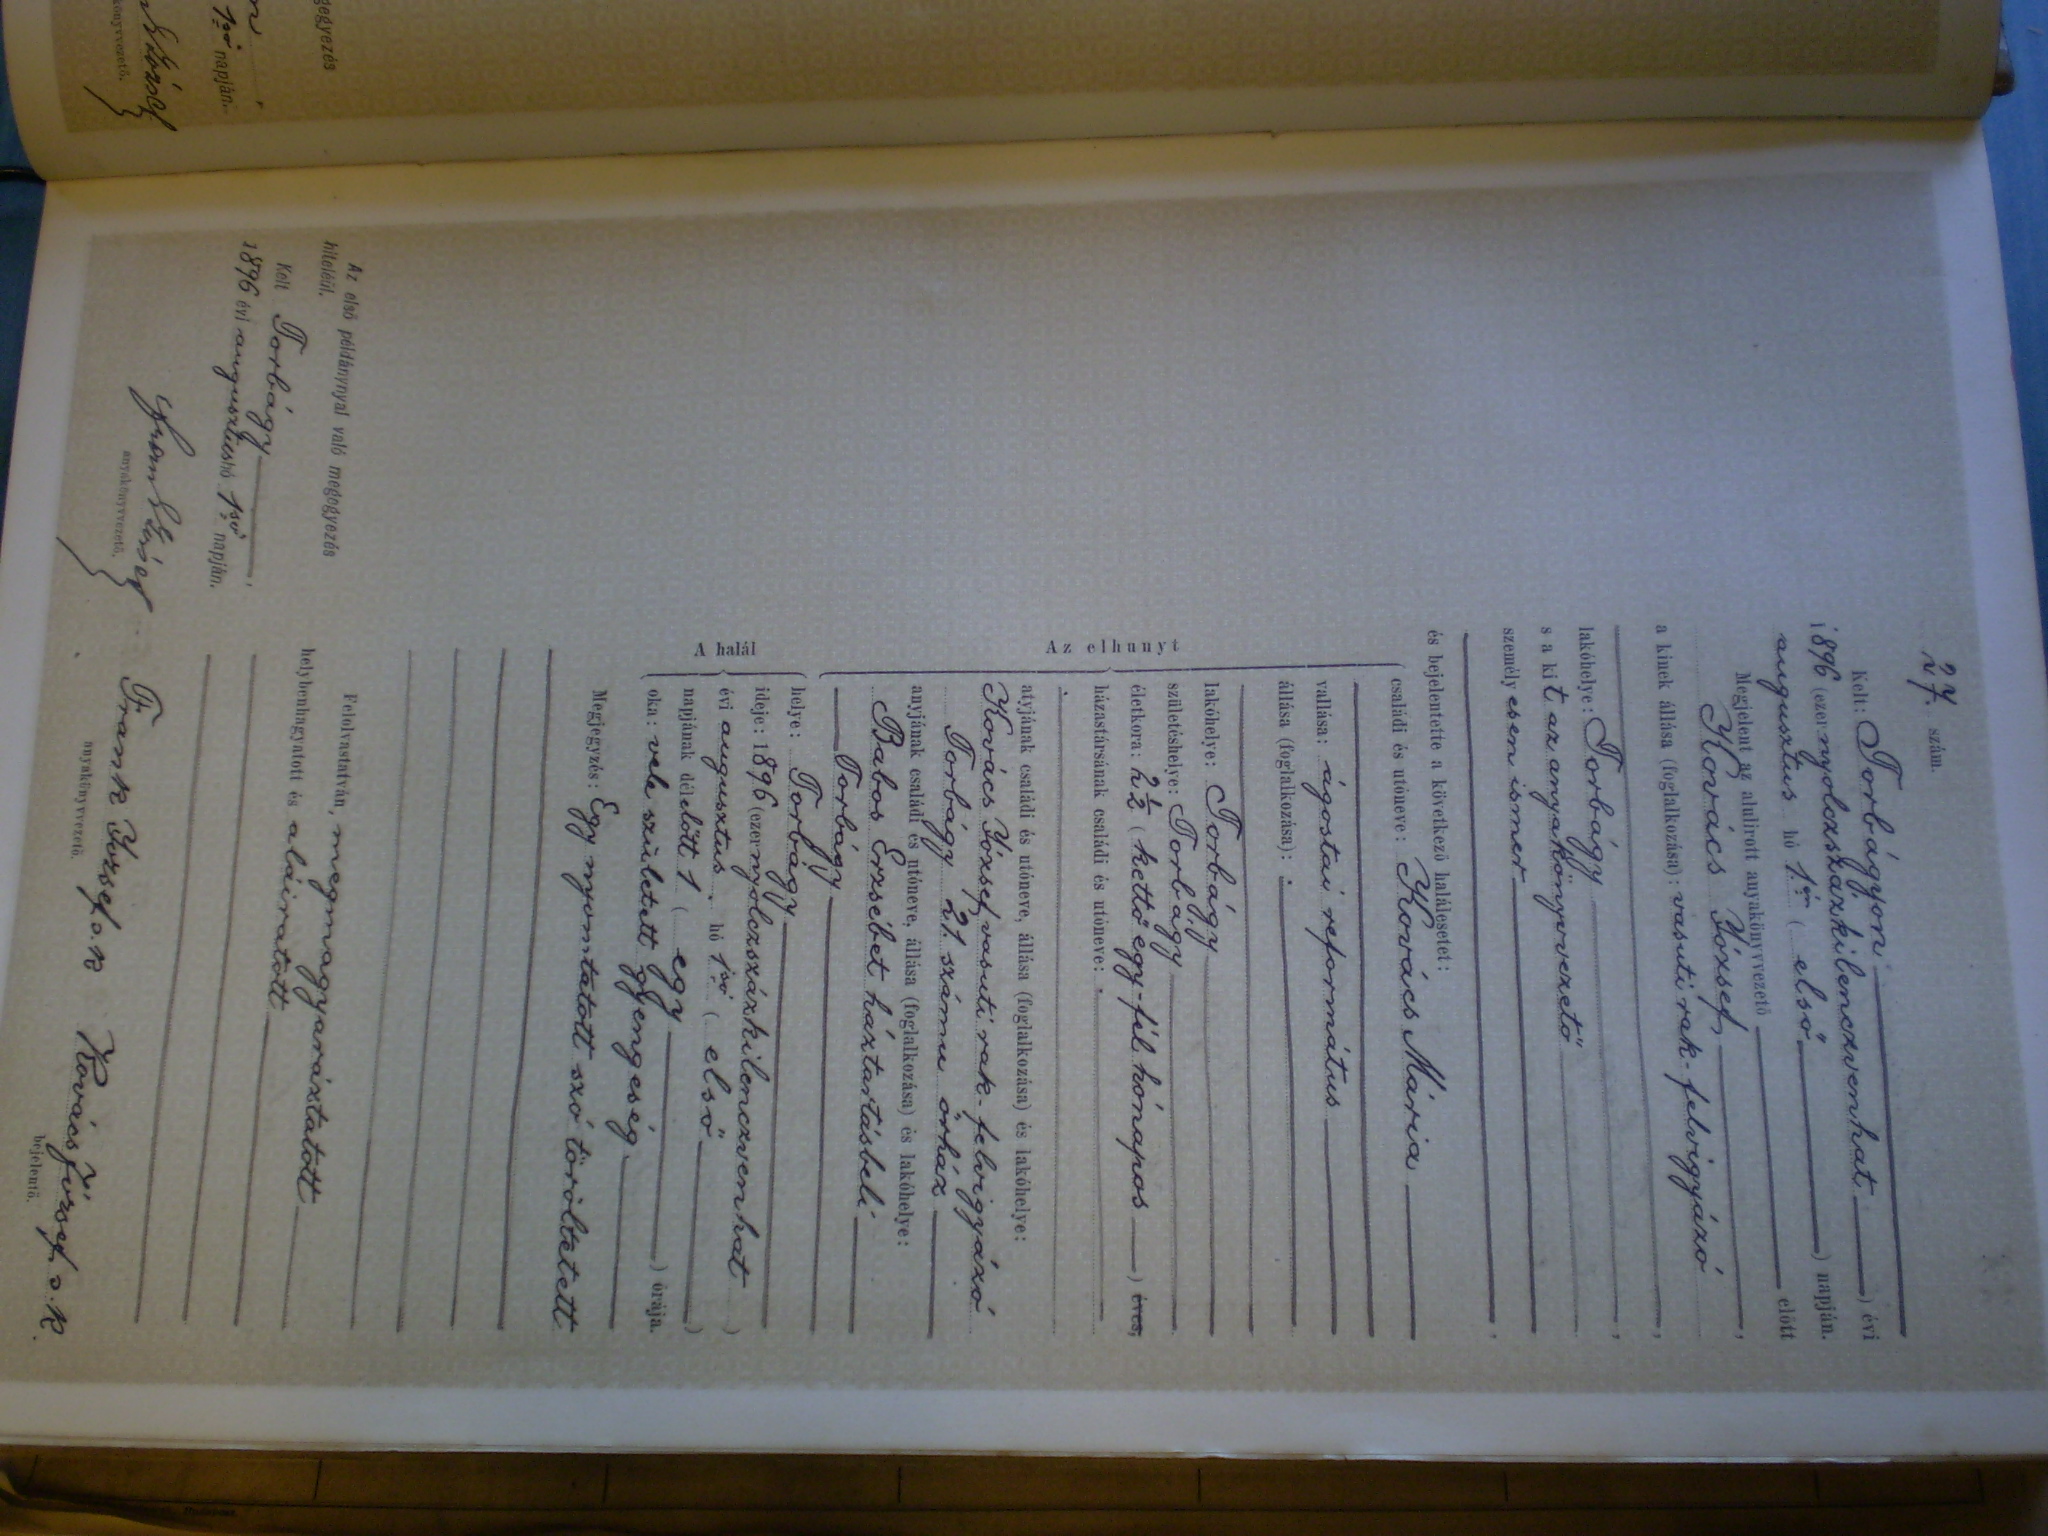 egyezés
1ső napján.
József
könyvvezető.
27. szám.
Kelt: Torbágyon
1896 (ezernyolczszázkilenczvenhat ) évi
augusztus hó 1én ( első ) napján.
Megjelent az alulirott anyakönyvvezető előtt
Kovács József,
a kinek állása (foglalkozása): vasuti rak-felvigyázó,
lakóhelye: Torbágy,
s a kit az anyakönyvvezető
személyesen ismer,
és bejelentette a következő halálesetet:
Az elhunyt
családi és utóneve: Kovács Mária
vallása: ágostai református
állása (foglalkozása): .
lakóhelye: Torbágy
születéshelye: Torbágy
életkora: 2½ ( kettő egy-fél hónapos ) éves,
házastársának családi és utóneve: .
atyjának családi és utóneve, állása (foglalkozása) és lakóhelye:
Kovács József, vasuti rak-felvigyázó
Torbágy 21. számu őrház
anyjának családi és utóneve, állása (foglalkozása) és lakóhelye:
Babos Erzsébet háztartásbeli
Torbágy
A halál
helye: Torbágy
ideje: 1896 (ezernyolczszázkilenczvenhat )
évi augusztus hó 1ső ( első )
napjának délelőtt 1 ( egy ) órája.
oka: vele született gyengeség.
Megjegyzés: Egy nyomtatott szó töröltetett
Felolvastatván, megmagyaráztatott
helybenhagyatott és aláiratott
Frank József s. k
anyakönyvvezető.
Kovács József s. k.
bejelentő.
Az első példánynyal való megegyezés
hiteléül.
Kelt Torbágy,
1896 évi augusztus hó 1ső napján.
Frank József
anyakönyvvezető.